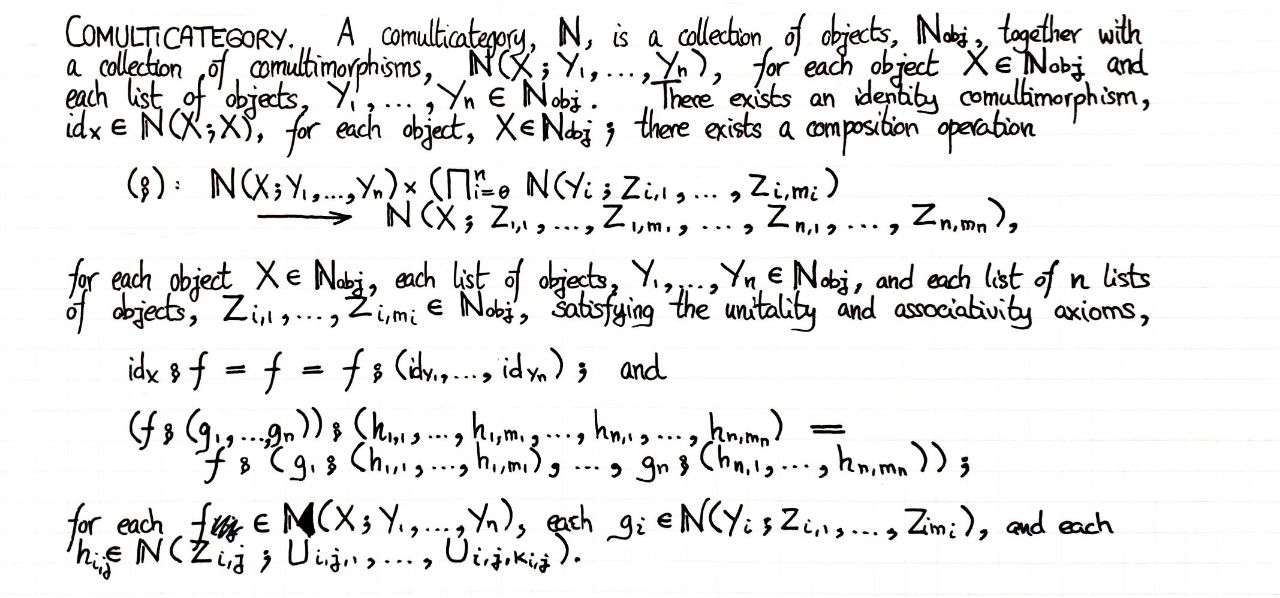 COMULTICATEGORY. A comulticategory, ℕ, is a collection of objects, ℕobj, together with
a collection of comultimorphisms, ℕ(X; Y₁, ..., Yₙ), for each object X ∈ ℕobj and
each list of objects, Y₁, ..., Yₙ ∈ ℕobj. There exists an identity comultimorphism,
idₓ ∈ ℕ(X; X), for each object, X ∈ ℕobj; there exists a composition operation
(⨟): ℕ(X; Y₁, ..., Yₙ) × (∏ⁿᵢ₌₀ ℕ(Yᵢ; Z_{i,1}, ..., Z_{i,mᵢ})
⟶ ℕ(X; Z_{1,1}, ..., Z_{1,m₁}, ..., Z_{n,1}, ..., Z_{n,mₙ}),
for each object X ∈ ℕobj, each list of objects, Y₁, ..., Yₙ ∈ ℕobj, and each list of n lists
of objects, Z_{i,1}, ..., Z_{i,mᵢ} ∈ ℕobj, satisfying the unitality and associativity axioms,
idₓ ⨟ f = f = f ⨟ (id_{Y₁}, ..., id_{Yₙ}); and
(f ⨟ (g₁, ..., gₙ)) ⨟ (h_{1,1}, ..., h_{1,m₁}, ..., h_{n,1}, ..., h_{n,mₙ}) =
f ⨟ (g₁ ⨟ (h_{1,1}, ..., h_{1,m₁}), ..., gₙ ⨟ (h_{n,1}, ..., h_{n,mₙ}));
for each f ∈ ℕ(X; Y₁, ..., Yₙ), each gᵢ ∈ ℕ(Yᵢ; Z_{i,1}, ..., Z_{imᵢ}), and each
h_{i,j} ∈ ℕ(Z_{i,j}; U_{i,j,1}, ..., U_{i,j,k_{i,j}}).